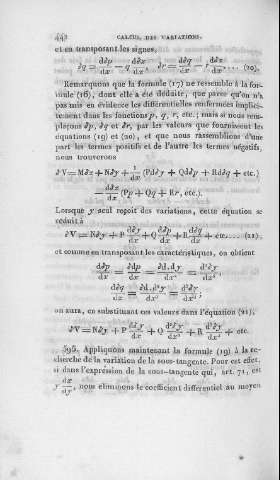 442 CALCUL DES VARIATIONS.
et en transposant les signes,
δq = dδp/dx − q dδx/dx, δr = dδq/dx − r dδx/dx .... (20).
Remarquons que la formule (17) ne ressemble à la for-
mule (16), dont elle a été déduite, que parce qu'on n'a
pas mis en évidence les différentielles renfermées implici-
tement dans les fonctions p, q, r, etc.; mais si nous rem-
plaçons δp, δq et δr, par les valeurs que fournissent les
équations (19) et (20), et que nous rassemblions d'une
part les termes positifs et de l'autre les termes négatifs,
nous trouverons
δV = Mδx + Nδy + 1/dx (Pdδy + Qdδp + Rdδq + etc.)
− dδx/dx (Pp + Qq + Rr, etc.).
Lorsque y seul reçoit des variations, cette équation se
réduit à
δV = Nδy + P dδy/dx + Q dδp/dx + R dδq/dx + etc.... (21),
et comme en transposant les caractéristiques, on obtient
dδp/dx = δdp/dx = δd.dy/dx² = d²δy/dx²
dδq/dx = δd.d²y/dx³ = d³δy/dx³;
on aura, en substituant ces valeurs dans l'équation (21),
δV = Nδy + P dδy/dx + Q d²δy/dx² + R d³δy/dx³ + etc.
595. Appliquons maintenant la formule (19) à la re-
cherche de la variation de la sous-tangente. Pour cet effet,
si dans l'expression de la sous-tangente qui, art. 71, est
y dx/dy, nous éliminons le coefficient différentiel au moyen